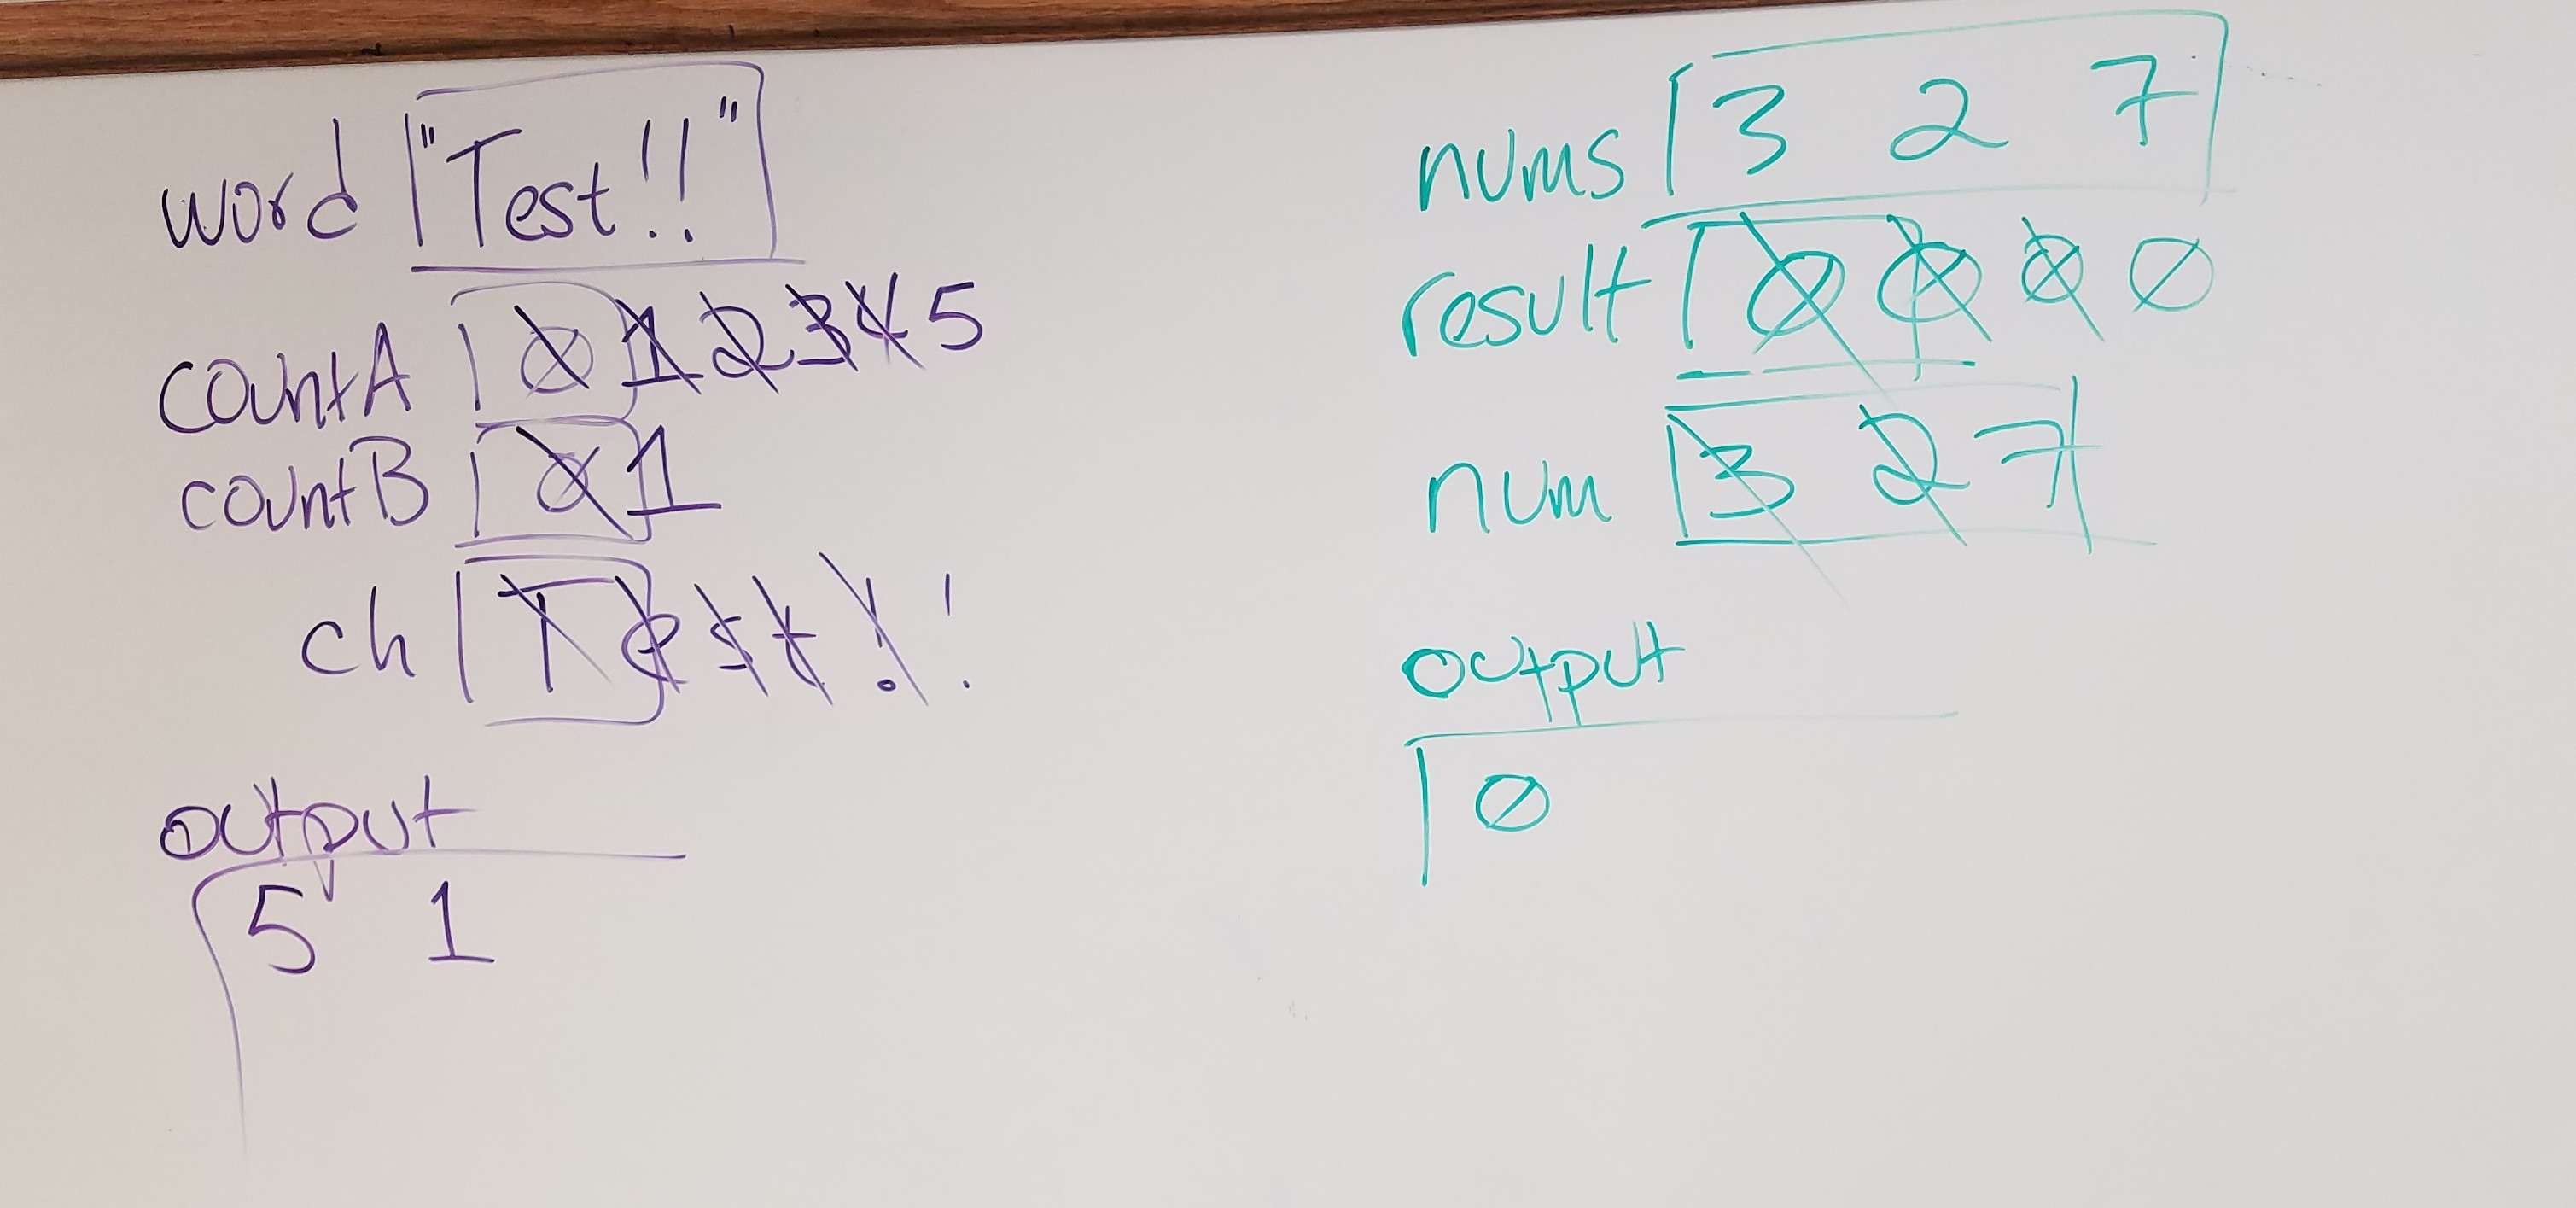 word "Test!!"
countA 0 1 2 3 4 5
countB 0 1
ch T e s t ! !
output
5 1
nums 3 2 7
result 0 0 0 0
num 3 2 7
output
0